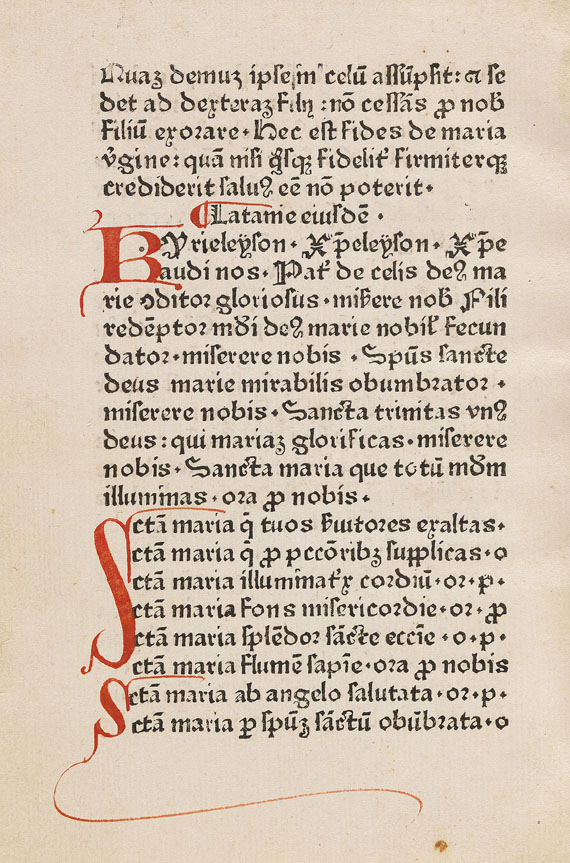 Quaꝫ demuꝫ ipse in celū assūpsit: ⁊ se
det ad dexteraꝫ filij :nō cessās ꝓ nob̄
filiū exorare · Hec est fides de maria
v̓gine : quā nisi q̇sqꝫ fidelit̓ firmiterqꝫ
crediderit saluꝰ eē nō poterit ·
¶Latanie eiusdē ·
Kyrieleyson · Xp̄eleyson · Xp̄e
audi nos · Pat̓ de celis deꝰ ma
rie ↄditor gloriosus · mis̄ere nob̄ Fili
redēptor mūdi deꝰ marie nobil̓ fecun
dator · miserere nobis · Spūs sancte
deus marie mirabilis obumbrator ·
miserere nobis · Sancta trinitas vnꝰ
deus : qui mariaꝫ glorificas · miserere
nobis · Sancta maria que totū mūdm
illuminas · ora ꝓ nobis ·
Sctā maria q̄ tuos s̓uitores exaltas ·
Sctā maria q̄ ꝓ pccōribꝫ supplicas · o
sctā maria illuminat̓x cordiū · or · p ·
sctā maria fons misericordie · or · ꝓ
sctā maria splēdor sācte eccīe · o · p ·
sctā maria flumē sapīe · ora ꝓ nobis
Sctā maria ab angelo salutata · or · p ·
sctā maria ꝑ spūꝫ sāctū obūbrata · o